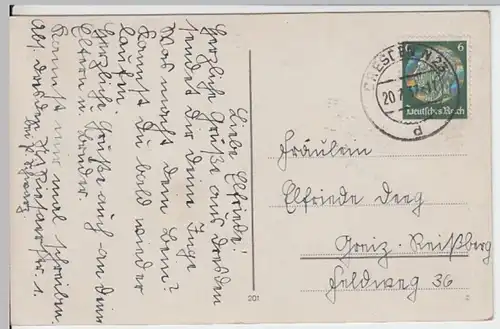 Liebe Elfriede!
Herzliche Grüße aus Dresden
sendet Dir Deine Inge
Was macht dein Bein?
Kannst Du bald wieder
laufen.
Herzliche Grüße auch an Deine
Eltern u. Bruder.
Kannst mir mal schreiben.
Abs. Dresden
bei
DRESDEN N 23
20.
d
6
Deutsches Reich
Fräulein
Elfriede Deeg
Greiz-Reißberg
Feldweg 36
201